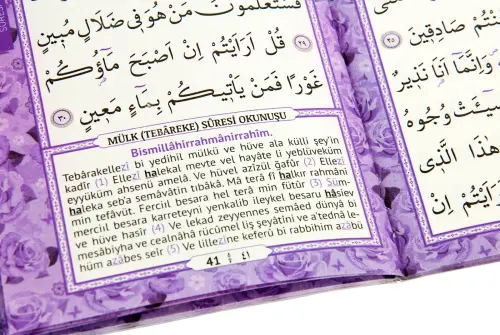 فَسَتَعْلَمُونَ مَنْ هُوَ فِى ضَلَالٍ مُبِينٍ
﴿٢٩﴾ قُلْ اَرَاَيْتُمْ اِنْ اَصْبَحَ مَٓاؤُ۬كُمْ
غَوْرًا فَمَنْ يَاْت۪يكُمْ بِمَٓاءٍ مَع۪ينٍ ﴿٣٠﴾
MÜLK (TEBÂREKE) SÛRESİ OKUNUŞU
Bismillâhirrahmânirrahîm.
Tebârakellezî bi yedihil mülkü ve hüve ala külli şey'in
kadîr (1) Ellezî halekal mevte vel hayâte li yeblüveküm
eyyüküm ahsenü amelâ. Ve hüvel azîzül gafûr (2) Ellezî
haleka seb'a semâvâtin tıbâkâ. Mâ terâ fî halkır rahmâni
min tefâvüt. Ferciıl besara hel terâ min fütûr (3) Süm-
merciıl besara karreteyni yenkalib ileykel besaru hâsiev
ve hüve hasîr (4) Ve lekad zeyyennes semâed dünyâ bi
mesâbiyha ve cealnâhâ rücûmel liş şeyâtîni ve a'tednâ le-
hüm azâbes seîr (5) Ve lillezîne keferû bi rabbihim azâbü
41 ٤١
كُنْتُمْ صَادِق۪ينَ ﴿٢٥﴾
وَاِنَّمَٓا اَنَا۬ نَذ۪يرٌ
س۪ٓيـَٔتْ وُجُوهُ
هٰذَا الَّذ۪ى